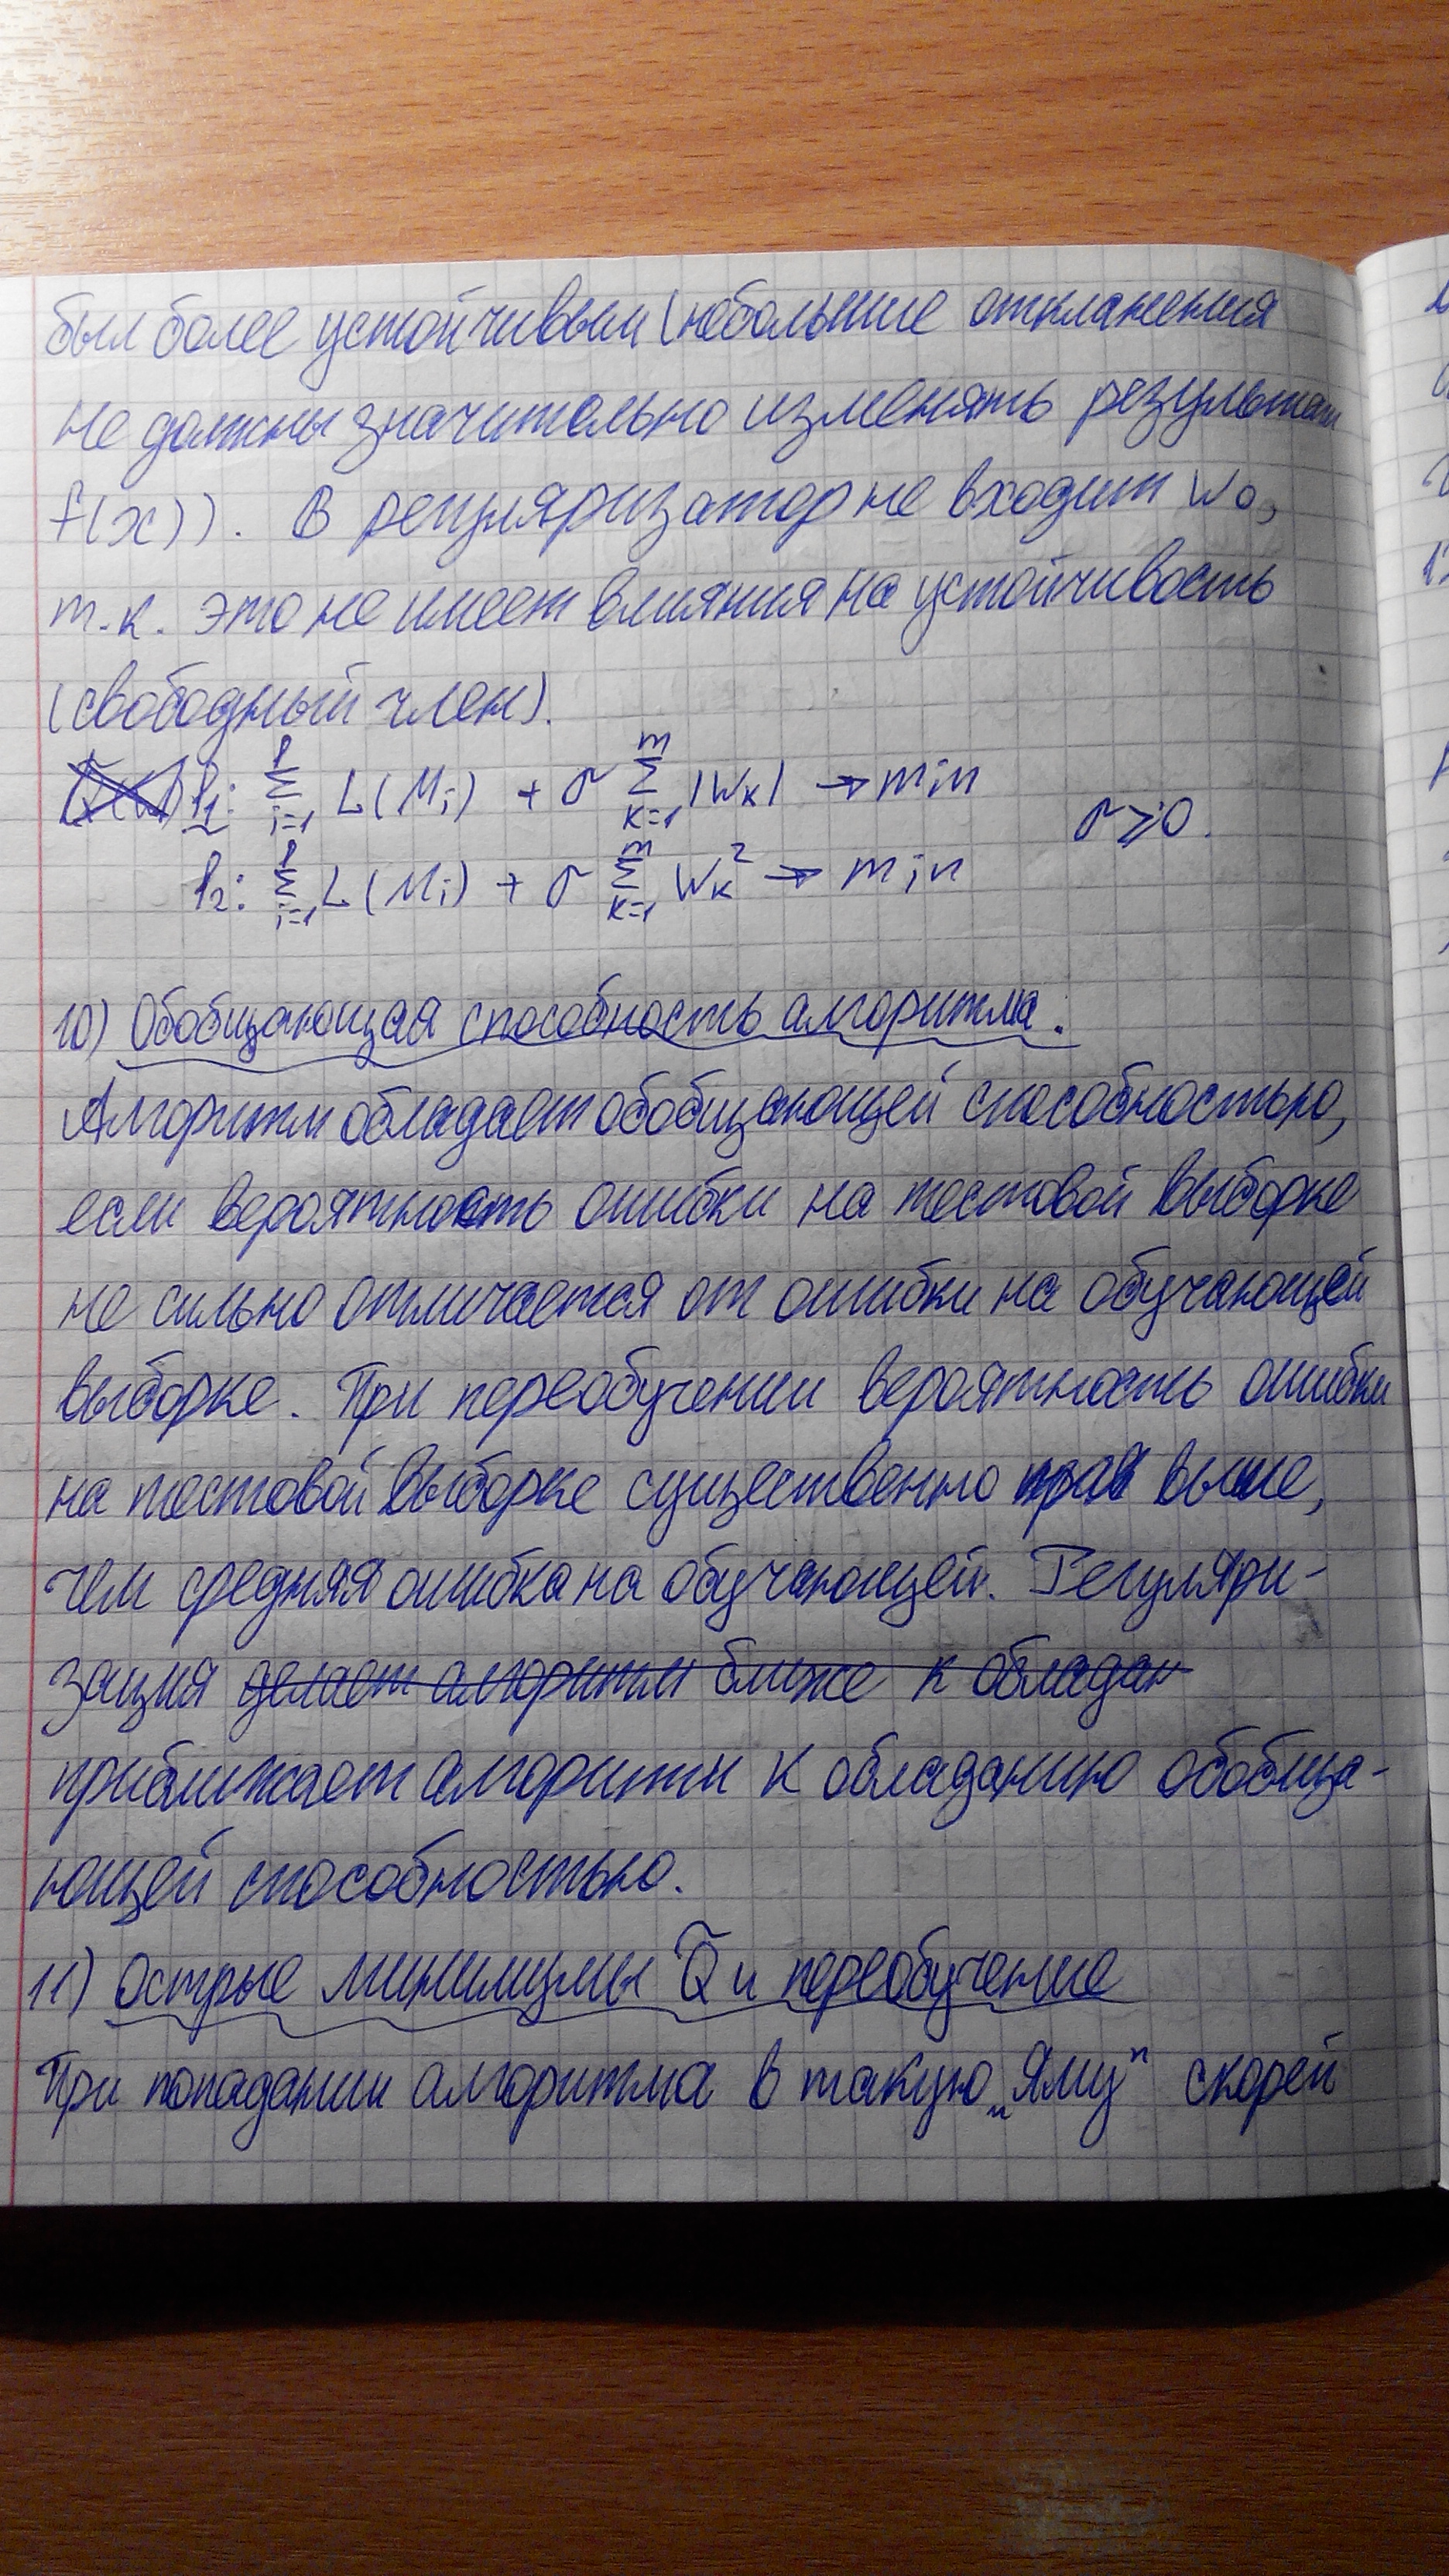 был более устойчивым (небольшие отклонения
не должны значительно изменять результат
f(x)). В регуляризатор не входит w₀,
т.к. это не имеет влияния на устойчивость
(свободный член).
l₁: Σ_{i=1}^{l} L(Mᵢ) + σ Σ_{k=1}^{m} |wₖ| → min
σ ≥ 0.
l₂: Σ_{i=1}^{l} L(Mᵢ) + σ Σ_{k=1}^{m} wₖ² → min
10) Обобщающая способность алгоритма.
Алгоритм обладает обобщающей способностью,
если вероятность ошибки на тестовой выборке
не сильно отличается от ошибки на обучающей
выборке. При переобучении вероятность ошибки
на тестовой выборке существенно выше,
чем средняя ошибка на обучающей. Регуляри-
зация делает алгоритм ближе к обладан
приближает алгоритм к обладанию обобща-
ющей способностью.
11) Острые минимумы Q̃ и переобучение
При попадании алгоритма в такую „яму" скорей